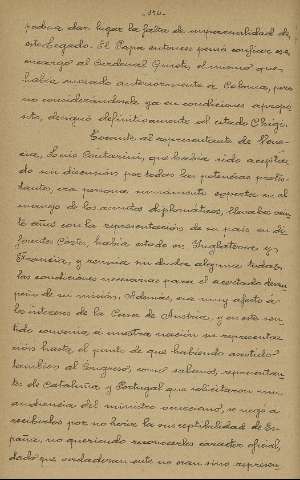 podría dar lugar la falta de imparcialidad de
este legado. El Papa entonces pensó confiar ese
encargo al Cardenal Ginetti, el mismo que
había enviado anteriormente a Colonia, pero
no considerándole ya en condiciones a propó-
sito, designó definitivamente al citado Chigi.
En cuanto al representante de Vene-
cia, Luis Contarini, que había sido acepta-
do sin discusión por todas las potencias protes-
tantes, era persona sumamente experta en el
manejo de los asuntos diplomáticos, llevaba vein-
te años con la representación de su país en di-
ferentes Cortes, había estado en Inglaterra y
Francia, y reunía sin duda alguna todas
las condiciones necesarias para el acertado desem-
peño de su misión. Además, era muy afecto a
los intereses de la Casa de Austria, y en este sen-
tido convenía a nuestra nación su representa-
ción hasta el punto de que habiendo acudido
también al Congreso, como sabemos, representan-
tes de Cataluña y Portugal que solicitaron una
audiencia del ministro veneciano, se negó a
recibirlos por no herir la susceptibilidad de Es-
paña, no queriendo reconocerles carácter oficial,
dado que verdaderamente no eran sino represen-